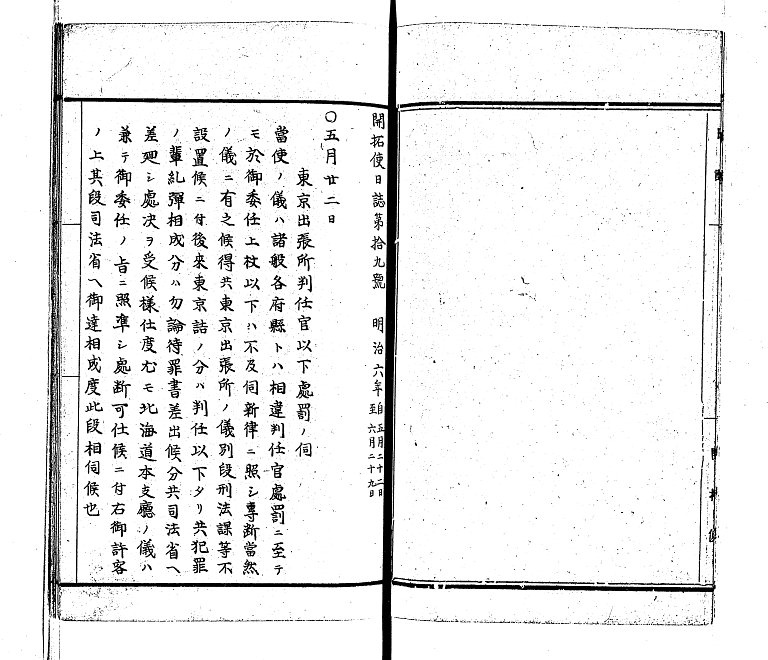 開拓使日誌第拾九號 明治六年自五月二十二日至六月二十九日
〇五月廿二日
東京出張所判任官以下處罰ノ伺
當使ノ儀ハ諸般各府縣トハ相違判任官處罰ニ至テ
モ於御委任上杖以下ハ不及伺新律ニ照シ專斷當然
ノ儀ニ有之候得共東京出張所ノ儀別段刑法課等不
設置候ニ付後來東京詰ノ分ハ判任以下タリ共犯罪
ノ輩糺彈相成分ハ勿論待罪書差出候分共司法省ヘ
差廻シ處决ヲ受候樣仕度尤モ北海道本支廳ノ儀ハ
兼テ御委任ノ旨ニ照準シ處斷可仕候ニ付右御許容
ノ上其段司法省ヘ御達相成度此段相伺候也